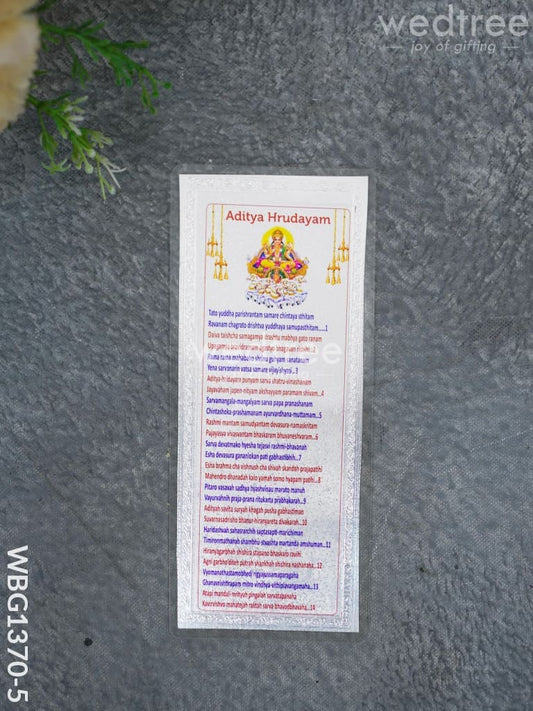 wedtree
joy of gifting
Aditya Hrudayam
Tato yuddha parishrantam samare chintaya sthitam
Ravanam chagrato drishtva yuddhaya samupasthitam....1
Daiva taishcha samagamya drashtu mabhya gato ranam
Upagamya bravidramam agastyo bhagavan rishihi..2
Rama rama mahabaho shrinu guhyam sanatanam
Yena sarvanarin vatsa samare vijayishyasi..3
Aditya-hridayam punyam sarva shatru-vinashanam
Jayavaham japen-nityam akshayyam paramam shivam...4
Sarvamangala-mangalyam sarva papa pranashanam
Chintashoka-prashamanam ayurvardhana-muttamam...5
Rashmi mantam samudyantam devasura-namaskritam
Pujayasva vivasvantam bhaskaram bhuvaneshvaram...6
Sarva devatmako hyesha tejasvi rashmi-bhavanah
Esha devasura gananlokan pati gabhastibhih...7
Esha brahma cha vishnush cha shivah skandah prajapathi
Mahendro dhanadah kalo yamah somo hyapam pathi...8
Pitaro vasavah sadhya hyashvinau maruto manuh
Vayurvahnih praja-prana ritukarta prabhakarah...9
Adityah savita suryah khagah pusha gabhastiman
Suvarnasadrisho bhanur-hiranyareta divakarah...10
Haridashvah sahasrarchih saptasapti-marichiman
Timironmathanah shambhu stvashta martanda amshuman...11
Hiranyagarbhah shishira stapano bhaskaro ravihi
Agni garbho'diteh putrah shankhah shishira nashanaha...12
Vyomanathastamobhedi rigyajussamaparagaha
Ghanavrishtirapam mitro vindhya vithiplavangamaha...13
Atapi mandali mrityuh pingalah sarvatapanaha
Kavirvishvo mahatejah raktah sarva bhavodbhavaha...14
WBG1370-5